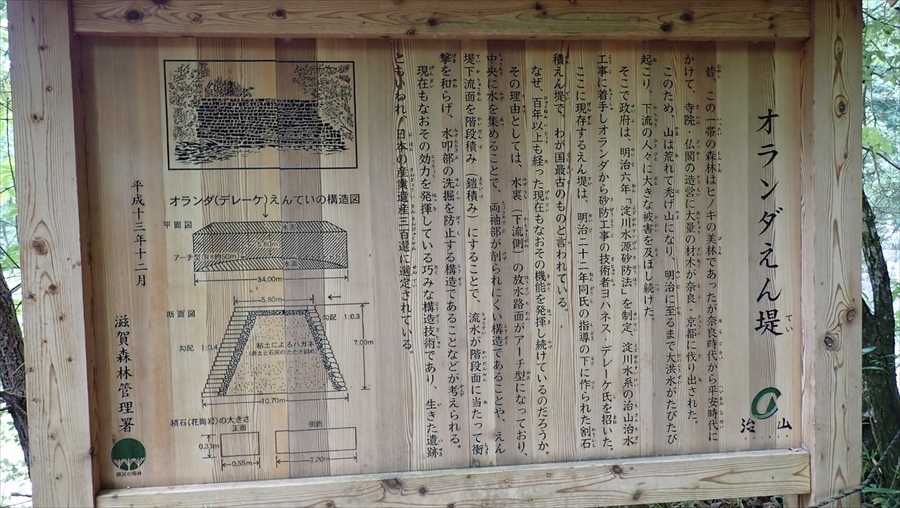 オランダえん堤
治山
昔、この一帯の森林はヒノキの美林であったが奈良時代から平安時代に
かけて、寺院・仏閣の造営に大量の材木が奈良・京都に伐り出された。
このため、山は荒れて禿げ山になり、明治に至るまで大洪水がたびたび
起こり、下流の人々に大きな被害を及ぼし続けた。
そこで政府は、明治六年『淀川水源砂防法』を制定、淀川水系の治山治水
工事に着手しオランダから砂防工事の技術者ヨハネス・デレーケ氏を招いた。
ここに現存するえん堤は、明治二十二年同氏の指導の下に作られた割石
積えん堤で、わが国最古のものと言われている。
なぜ、百年以上も経った現在もなおその機能を発揮し続けているのだろうか。
その理由としては、水裏（下流側）の放水路面がアーチ型になっており、
中央に水を集めることで、両袖部が削られにくい構造であることや、えん
堤下流面を階段積み（鎧積み）にすることで、流水が階段面に当たって衝
撃を和らげ、水叩部の洗掘を防止する構造であることなどが考えられる。
現在もなおその効力を発揮している巧みな構造技術であり、生きた遺跡
ともいわれ、日本の産業遺産三百選に選定されている。
オランダ(デレーケ)えんていの構造図
平面図
34.00m
断面図
5.80m
勾配 1:0.3
勾配 1:0.4
7.00m
粘土によるハガネ
10.70m
積石(花崗岩)の大きさ
正面
側面
0.33m
0.55m
1.20m
平成十三年十二月
滋賀森林管理署